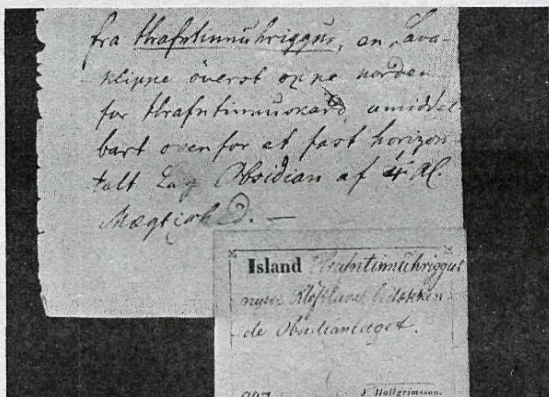 fra Hrafntinnuhriggur, en Lava-
klippe överst oppe norden
for Hrafntinnuskard, umiddel
bart ovenfor et fast horizon
talt Lag Obsidian af 4 Al.
Mægtighed. —
Island Hrafntinnuhriggur
nyere Kløftlava bedækken
de Obsidianlaget.
J Hallgrimsson.